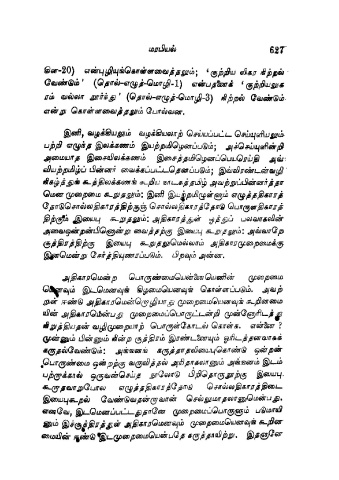 மரபியல் 627
கின-20) என்புழியுங்கொள்ளவைத்ததும்; 'குற்றிய லிகர நிற்றல்
வேண்டும்' (தொல்-எழுத்-மொழி-1) என்பதனைக் 'குற்றியலுக
ரம் வல்லா றூர்ந்து' (தொல்-எழுத்-மொழி-3) நிற்றல் வேண்டும்
என்று கொள்ளவைத்ததும் போல்வன.
இனி, வழக்கியலும் வழக்கியலாற் செய்யப்பட்ட செய்யுளியலும்
பற்றி எழுந்த இலக்கணம் இயற்றமிழெனப்படும்; அச்செய்யுளின்றி
அமையாத இசையிலக்கணம் இசைத்தமிழெனப்பெயரெய்தி அவ்
வியற்றமிழ்ப் பின்னர் வைக்கப்பட்டதெனப்படும்; இவ்விரண்டன்வழி
நிகழ்த்துங் கூத்திலக்கணங் கூறிய நாடகத்தமிழ் அவற்றுப்பின்னர்த்தா
மென முறைமை கூறுதலும்; இனி இயற்றமிழுள்ளும் எழுத்ததிகாரத்
தோடுசொல்லதிகாரத்திற்குஞ் சொல்லதிகாரத்தோடு பொருளதிகாரத்
திற்கும் இயைபு கூறுதலும்; அதிகாரத்துள் ஒத்துப் பலவாகலின்
அவைஒன்றன்பினொன்று வைத்தற்கு இயைபு கூறுதலும்; அவ்வாறே
சூத்திரத்திற்கு இயைபு கூறுதலுமெல்லாம் அதிகாரமுறைமைக்கு
இனமென்று சேர்த்தியுணரப்படும். பிறவும் அன்ன.
அதிகாரமென்ற பொருண்மையென்னையெனின் முறைமை
யெனவும் இடமெனவுங் கிழமையெனவுங் கொள்ளப்படும். அவற்
றுள் ஈண்டு அதிகாரமென்றொழியாது முறைமையெனவுங் கூறினமை
யின் அதிகாரமென்பது முறைமைப்பொருட்டன்றி முன்னோரிடத்து
நிறுத்தியதன் வழிமுறையாற் பொருள்கோடல் கொள்க. என்னை ?
முன்னும் பின்னும் நின்ற சூத்திரம் இரண்டனையும் ஓரிடத்தனவாகக்
கருதல்வேண்டும்: அங்ஙனங் கருத்தாதலியைபுகொண்டு ஒன்றன்
பொருண்மை ஒன்றற்கு வருவித்தல் அரிதாகலானும் அங்ஙனம் இடம்
பற்றாக்கால் ஒருவன்செய்த நூலோடு பிறிதொருநூற்கு இயைபு
கூறாதவாறுபோல எழுத்ததிகாரத்தோடு சொல்லதிகாரத்திடை
இயைபுகூறல் வேண்டுவதன்றாவான் செல்லுமாதலானுமென்பது.
எனவே, இடமெனப்பட்டதூஉம் முறைமைப்பொருளும் படுமாயி
னும் இச்சூத்திரத்துள் அதிகாரமெனவும் முறைமையெனவுங் கூறின
மையின் ஈண்டு இடமுறைமையென்பதே கருத்தாயிற்று. இதனானே